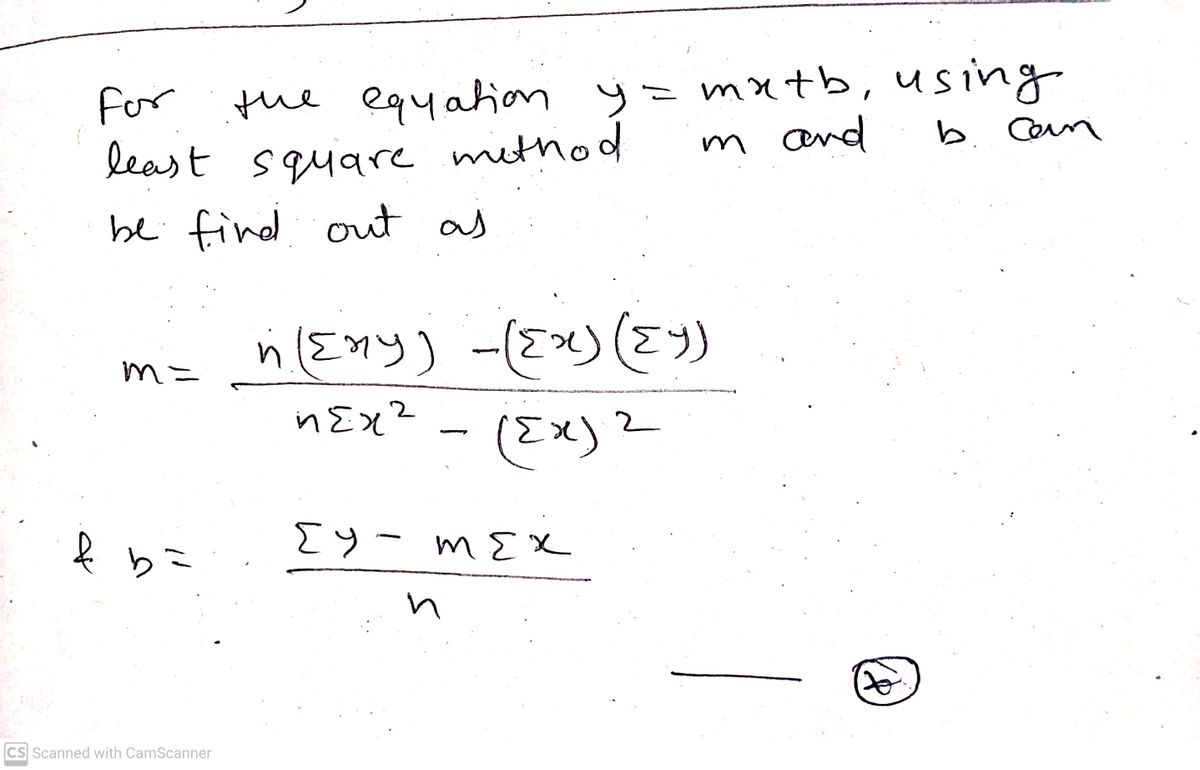 For the equation y = mx+b, using
least square method m and b can
be find out as
m = n(Σxy) -(Σx)(Σy)
nΣx² - (Σx)²
& b = Σy - mΣx
n
CS Scanned with CamScanner